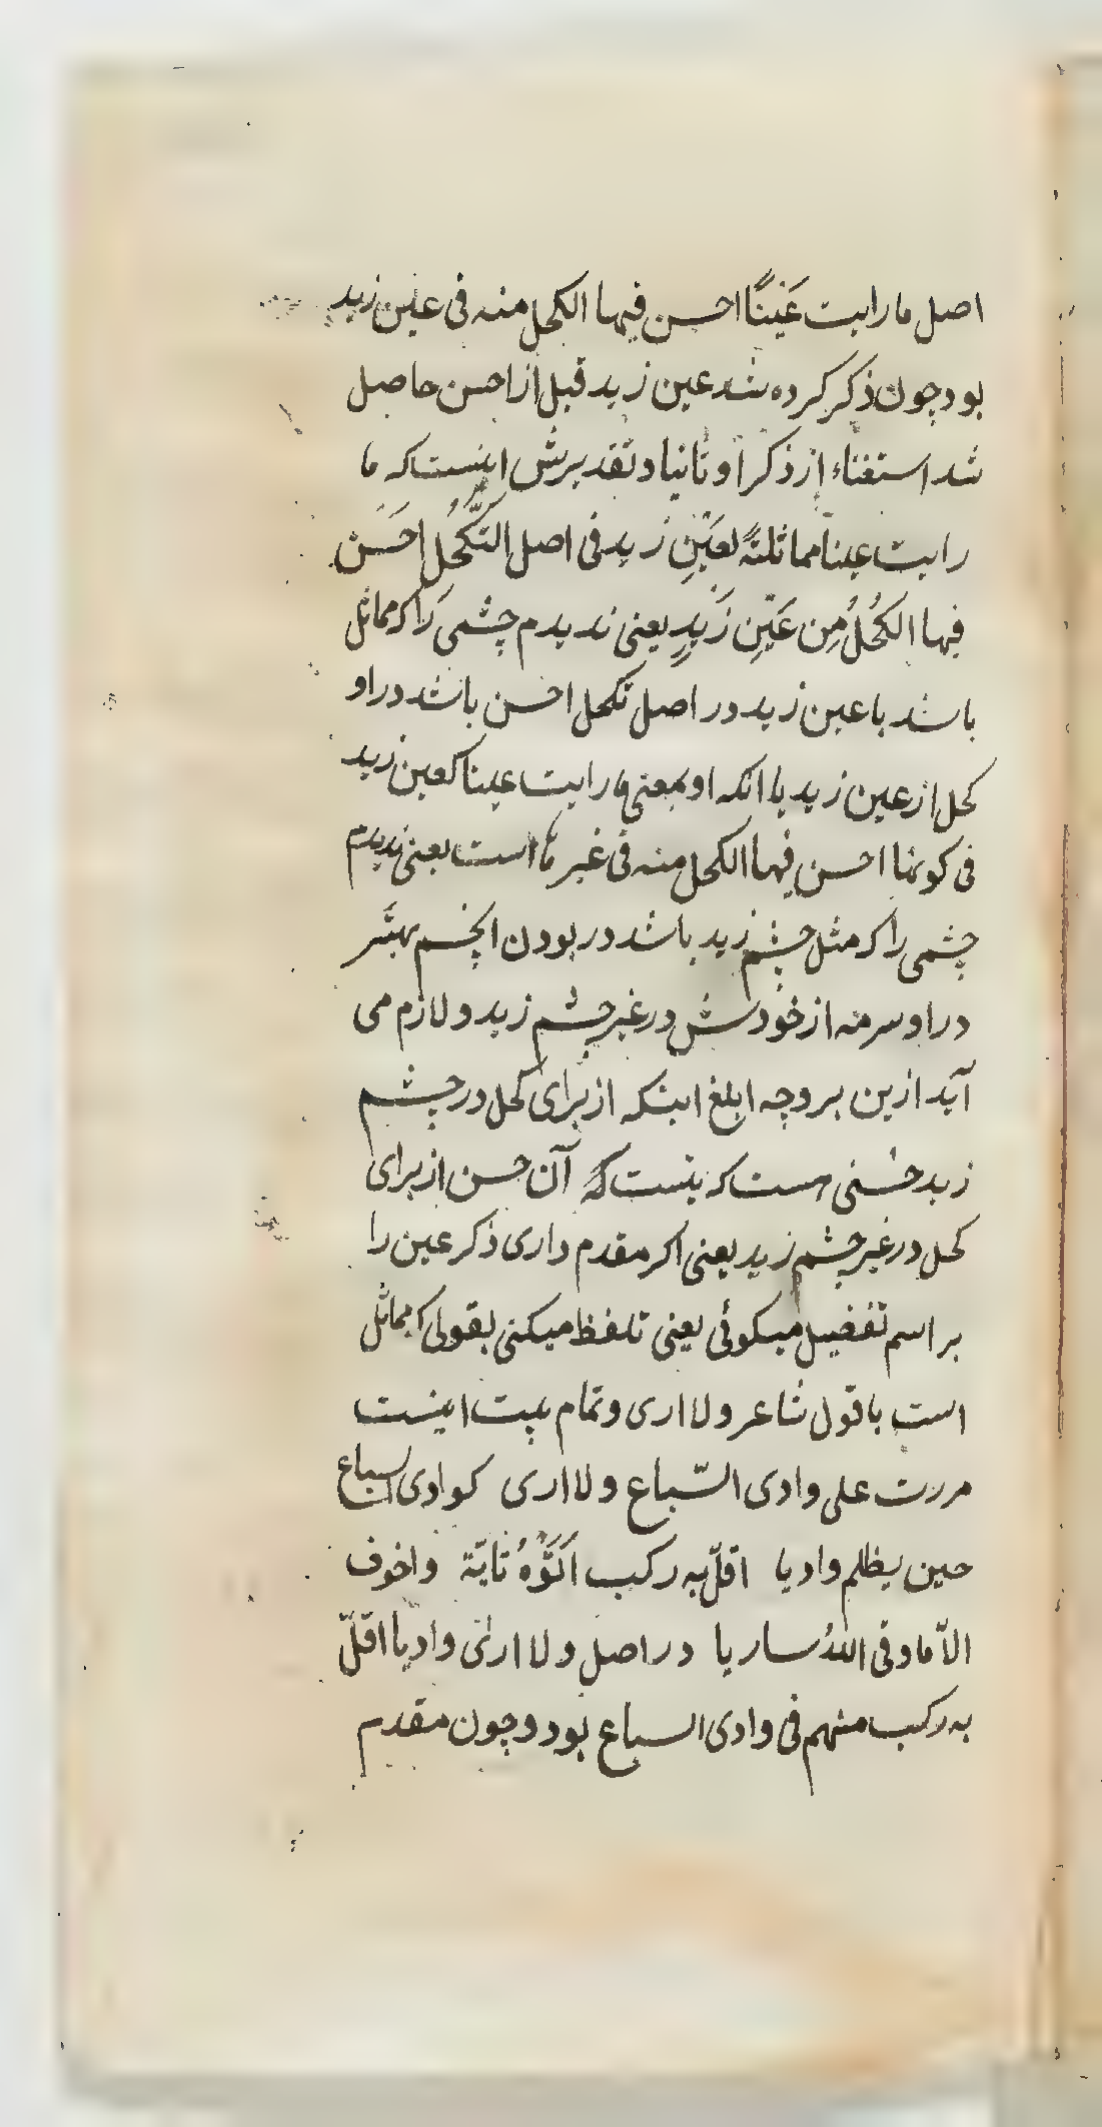 اصل ما رایت عَیْنًا احسن فیها الکحل منه فی عین زید
بود چون ذکر کرده شد عین زید قبل از احسن حاصل
شد استغناء از ذکر او ثانیا و تقدیرش اینست که ما
رایت عینا مماثلةً لعَیْنِ زید فی اصل التَّکَحُّل احَسَن
فیها الکُحُلُ مِن عَیْنِ زَیدٍ یعنی ندیدم چشمی را که مماثل
باشد با عین زید در اصل تکحل احسن باشد در او
کحل از عین زید یا انکه او بمعنی ما رایت عینا کعین زید
فی کونها احسن فیها الکحل منه فی غیرها است یعنی ندیدم
چشمی را که مثل چشم زید باشد در بودن انچشم بهتر
در او سرمه از خودش در غیر چشم زید و لازم می
آید ازین بر وجه ابلغ اینکه از برای کحل در چشم
زید حسنی هست که نیست که آن حسن از برای
کحل در غیر چشم زید یعنی اکر مقدم داری ذکر عین را
بر اسم تفضیل میکوئی یعنی تلفظ میکنی بقولی که مماثل
است با قول شاعر و لا اری و تمام بیت اینست
مررت علی وادی السّباع و لا اری کوادی السباع
حین یظلم وادیا اقلّ به رکب اَتَوْهُ تایّة و اخوف
الاّ ما وقی اللهُ ساریا در اصل و لا اری وادیا اقلّ
به رکب منهم فی وادی السباع بود و چون مقدم